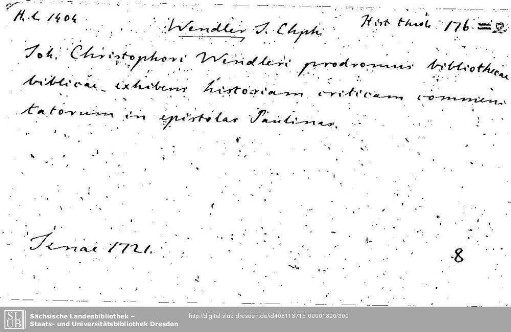 H.L. 1404
Wendler J. Chph.
Hist. theol. 176
Joh. Christophori Wendleri prodromus bibliothecae
biblicae exhibens historiam criticam commen
tatorum in epistolas Paulinas.
Jenae 1721.
8
Sächsische Landesbibliothek –
Staats- und Universitätsbibliothek Dresden